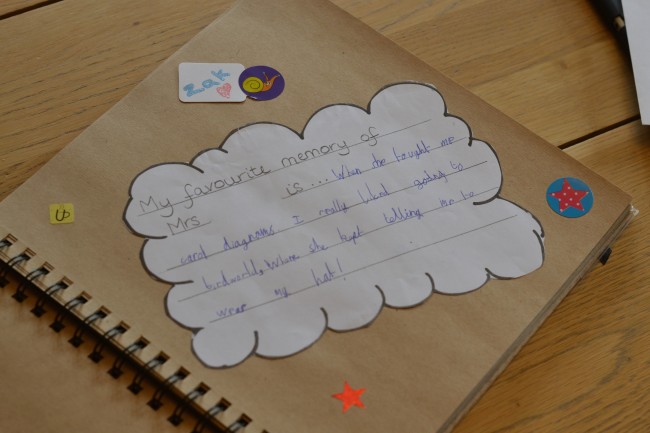 Zak
My favourite memory of
Mrs is... When she taught me
carrol diagrams I really liked going to
birdworld. When she kept telling me to
wear my hat!